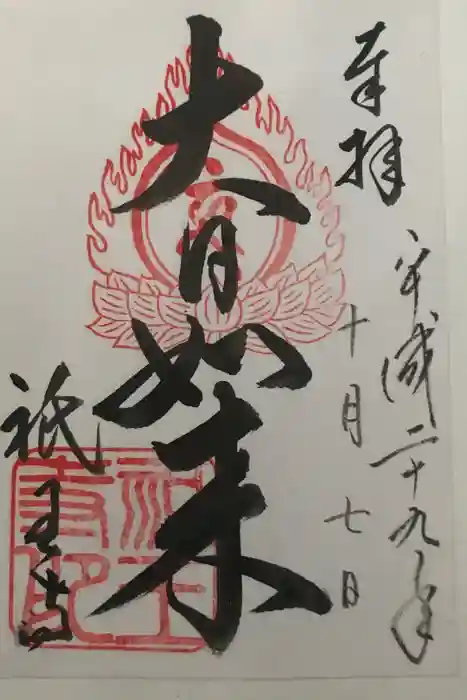 奉拝
平成二十九年
十月七日
大日如来
祇王寺